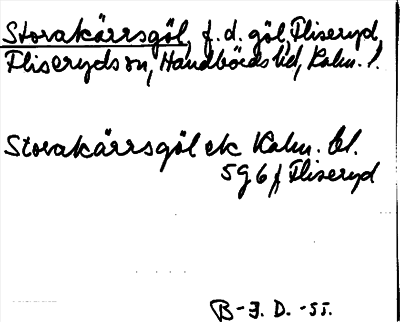 Storakärrsgöl, f.d. göl, Fliseryd,
Fliseryds sn, Handbörds hd, Kalm. l.
Storakärrsgöl ek Kalm. bl.
5 g 6 f Fliseryd
B-E. D. -55.